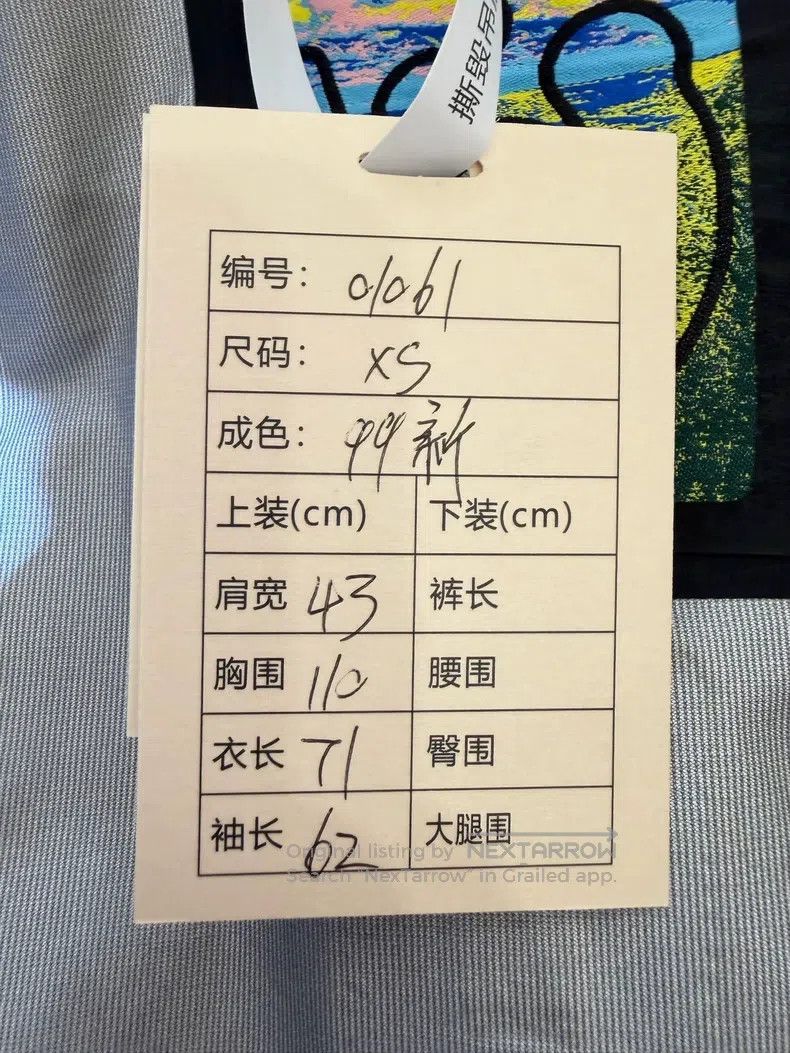 撕毁吊
编号: 01061
尺码: XS
成色: 99新
上装(cm) 下装(cm)
肩宽 43 裤长
胸围 110 腰围
衣长 71 臀围
袖长 62 大腿围
Original listing by NEXTARROW
Search "NexTarrow" in Grailed app.